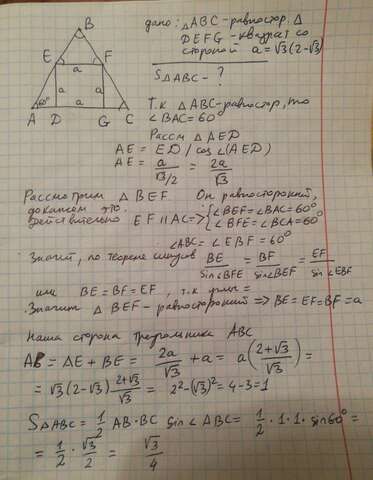 B
E
F
a
a
a
a
60°
A
D
G
C
дано: △ABC - равностор. △
DEFG - квадрат со
стороной a = √3(2-√3)
S△ABC - ?
Т.к △ABC-равностор, то
∠BAC = 60°
Рассм △AED
AE = ED / cos∠(AED)
AE = a / (√3/2) = 2a/√3
Рассмотрим △BEF Он равносторонний,
докажем это.
Действительно EF||AC => { ∠BEF=∠BAC=60°
∠BFE=∠BCA=60°
∠ABC=∠EBF=60°
Значит, по теореме синусов BE/sin∠BFE = BF/sin∠BEF = EF/sin∠EBF
или BE=BF=EF, т.к углы =
Значит △BEF-равносторонний => BE=EF=BF=a
Наша сторона треугольника ABC
AB = AE + BE = 2a/√3 + a = a(2+√3 / √3) =
= √3(2-√3) 2+√3/√3 = 2²-(√3)² = 4-3=1
S△ABC = 1/2 AB·BC sin∠ABC = 1/2 · 1 · 1 · sin60° =
= 1/2 · √3/2 = √3/4